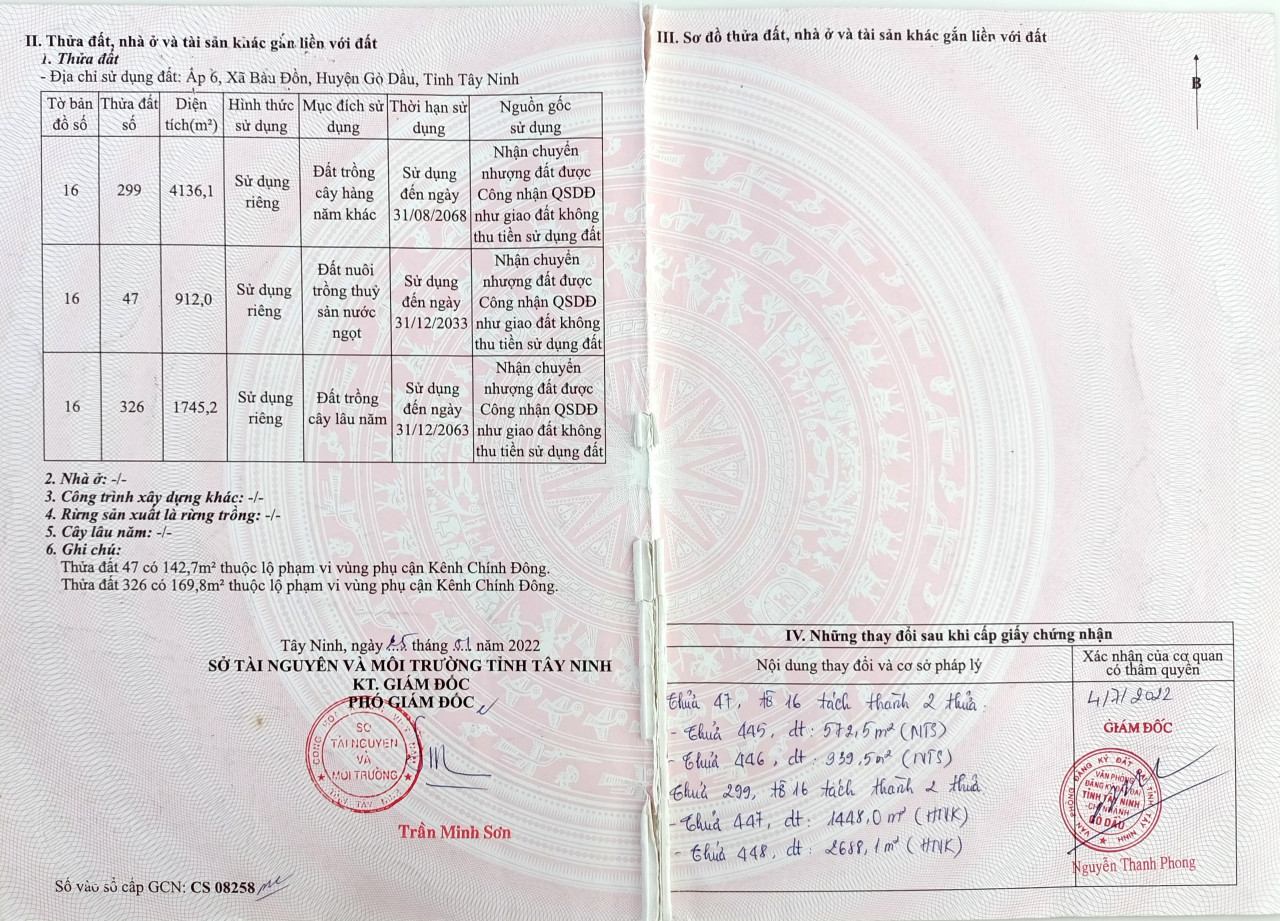 II. Thửa đất, nhà ở và tài sản khác gắn liền với đất
1. Thửa đất
- Địa chỉ sử dụng đất: Ấp 6, Xã Bàu Đồn, Huyện Gò Dầu, Tỉnh Tây Ninh
Tờ bản đồ số | Thửa đất số | Diện tích(m²) | Hình thức sử dụng | Mục đích sử dụng | Thời hạn sử dụng | Nguồn gốc sử dụng
16 | 299 | 4136,1 | Sử dụng riêng | Đất trồng cây hàng năm khác | Sử dụng đến ngày 31/08/2068 | Nhận chuyển nhượng đất được Công nhận QSDĐ như giao đất không thu tiền sử dụng đất
16 | 47 | 912,0 | Sử dụng riêng | Đất nuôi trồng thuỷ sản nước ngọt | Sử dụng đến ngày 31/12/2033 | Nhận chuyển nhượng đất được Công nhận QSDĐ như giao đất không thu tiền sử dụng đất
16 | 326 | 1745,2 | Sử dụng riêng | Đất trồng cây lâu năm | Sử dụng đến ngày 31/12/2063 | Nhận chuyển nhượng đất được Công nhận QSDĐ như giao đất không thu tiền sử dụng đất
2. Nhà ở: -/-
3. Công trình xây dựng khác: -/-
4. Rừng sản xuất là rừng trồng: -/-
5. Cây lâu năm: -/-
6. Ghi chú:
Thửa đất 47 có 142,7m² thuộc lộ phạm vi vùng phụ cận Kênh Chính Đông.
Thửa đất 326 có 169,8m² thuộc lộ phạm vi vùng phụ cận Kênh Chính Đông.
Tây Ninh, ngày 25 tháng 01 năm 2022
SỞ TÀI NGUYÊN VÀ MÔI TRƯỜNG TỈNH TÂY NINH
KT. GIÁM ĐỐC
PHÓ GIÁM ĐỐC
SỞ
TÀI NGUYÊN
VÀ
MÔI TRƯỜNG
Trần Minh Sơn
Số vào sổ cấp GCN: CS 08258
III. Sơ đồ thửa đất, nhà ở và tài sản khác gắn liền với đất
B
IV. Những thay đổi sau khi cấp giấy chứng nhận
Nội dung thay đổi và cơ sở pháp lý | Xác nhận của cơ quan có thẩm quyền
Thửa 47, tờ 16 tách thành 2 thửa:
- Thửa 445, dt: 572,5m² (NTS)
- Thửa 446, dt: 339,5m² (NTS)
Thửa 299, tờ 16 tách thành 2 thửa
- Thửa 447, dt: 1448,0m² (HNK)
- Thửa 448, dt: 2688,1m² (HNK)
4/7/2022
GIÁM ĐỐC
VĂN PHÒNG
ĐĂNG KÝ ĐẤT ĐAI
TỈNH TÂY NINH
CHI NHÁNH
GÒ DẦU
Nguyễn Thanh Phong